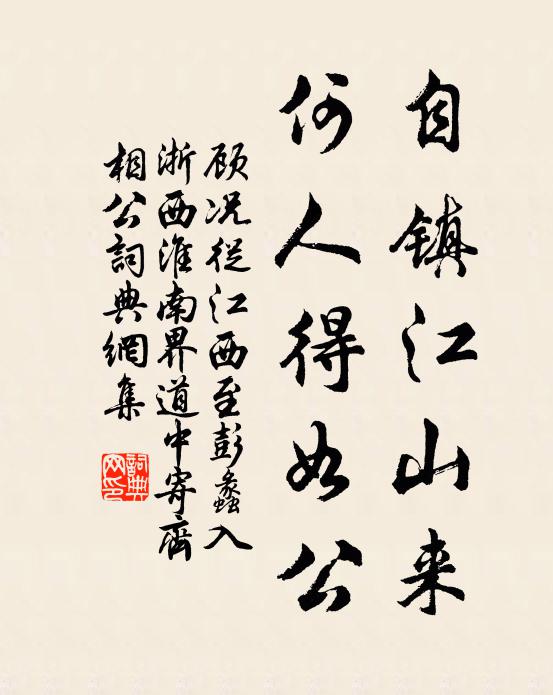 自镇江山来
何人得如公
顾况从江西至彭蠡入
浙西淮南界道中寄齊
相公詞典網集
詞典
网印